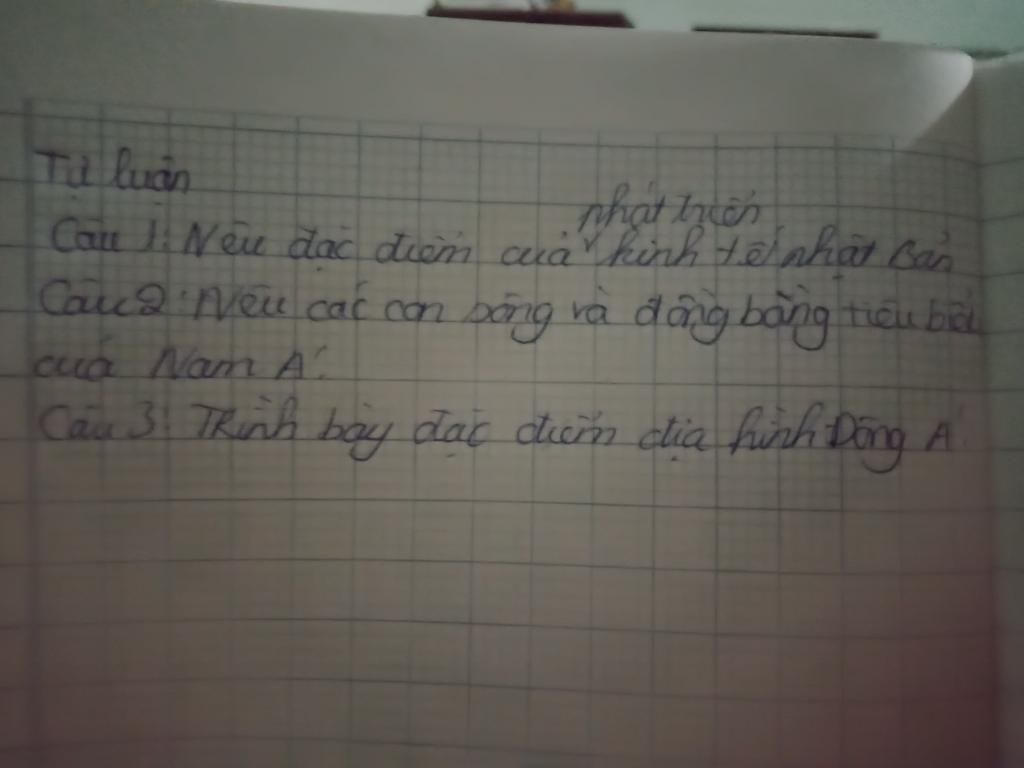 Tự luận
Câu 1: Nêu đặc điểm của phát triển kinh tế nhật bản
Câu 2: Nêu các con sông và đồng bằng tiêu biểu
của Nam Á.
Câu 3: Trình bày đặc điểm địa hình Đông Á.